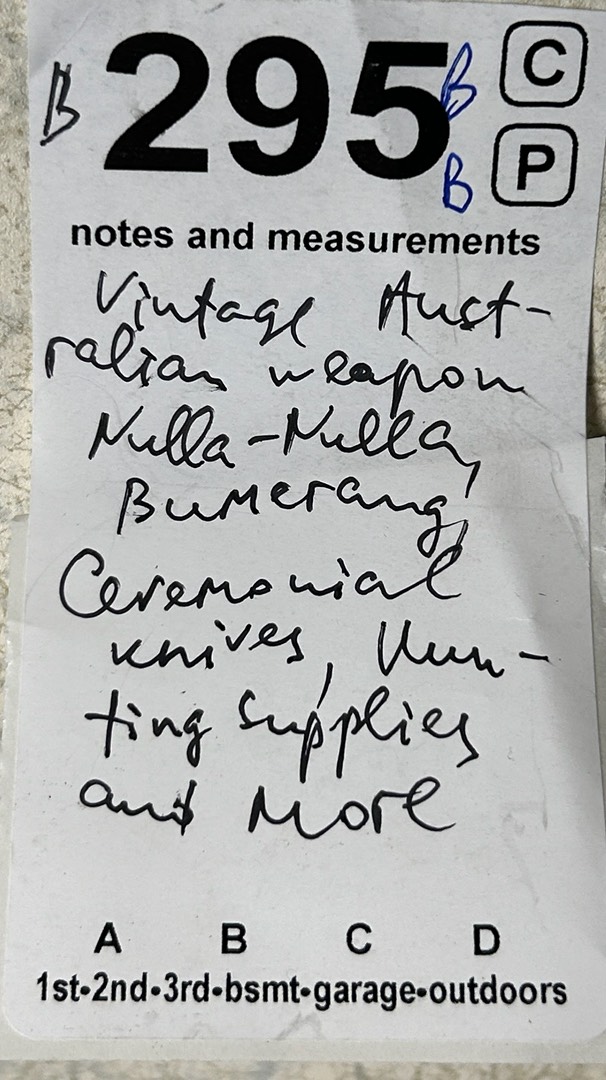 B 295 B C
B P
notes and measurements
Vintage Aust-
ralian weapon
Nulla-Nulla,
Bumerang,
Ceremonial
knives, Hun-
ting supplies
and More
A B C D
1st•2nd•3rd•bsmt•garage•outdoors